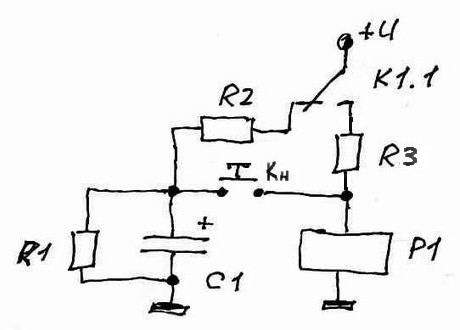 +U
K1.1
R2
R3
Кн
+
R1
C1
P1